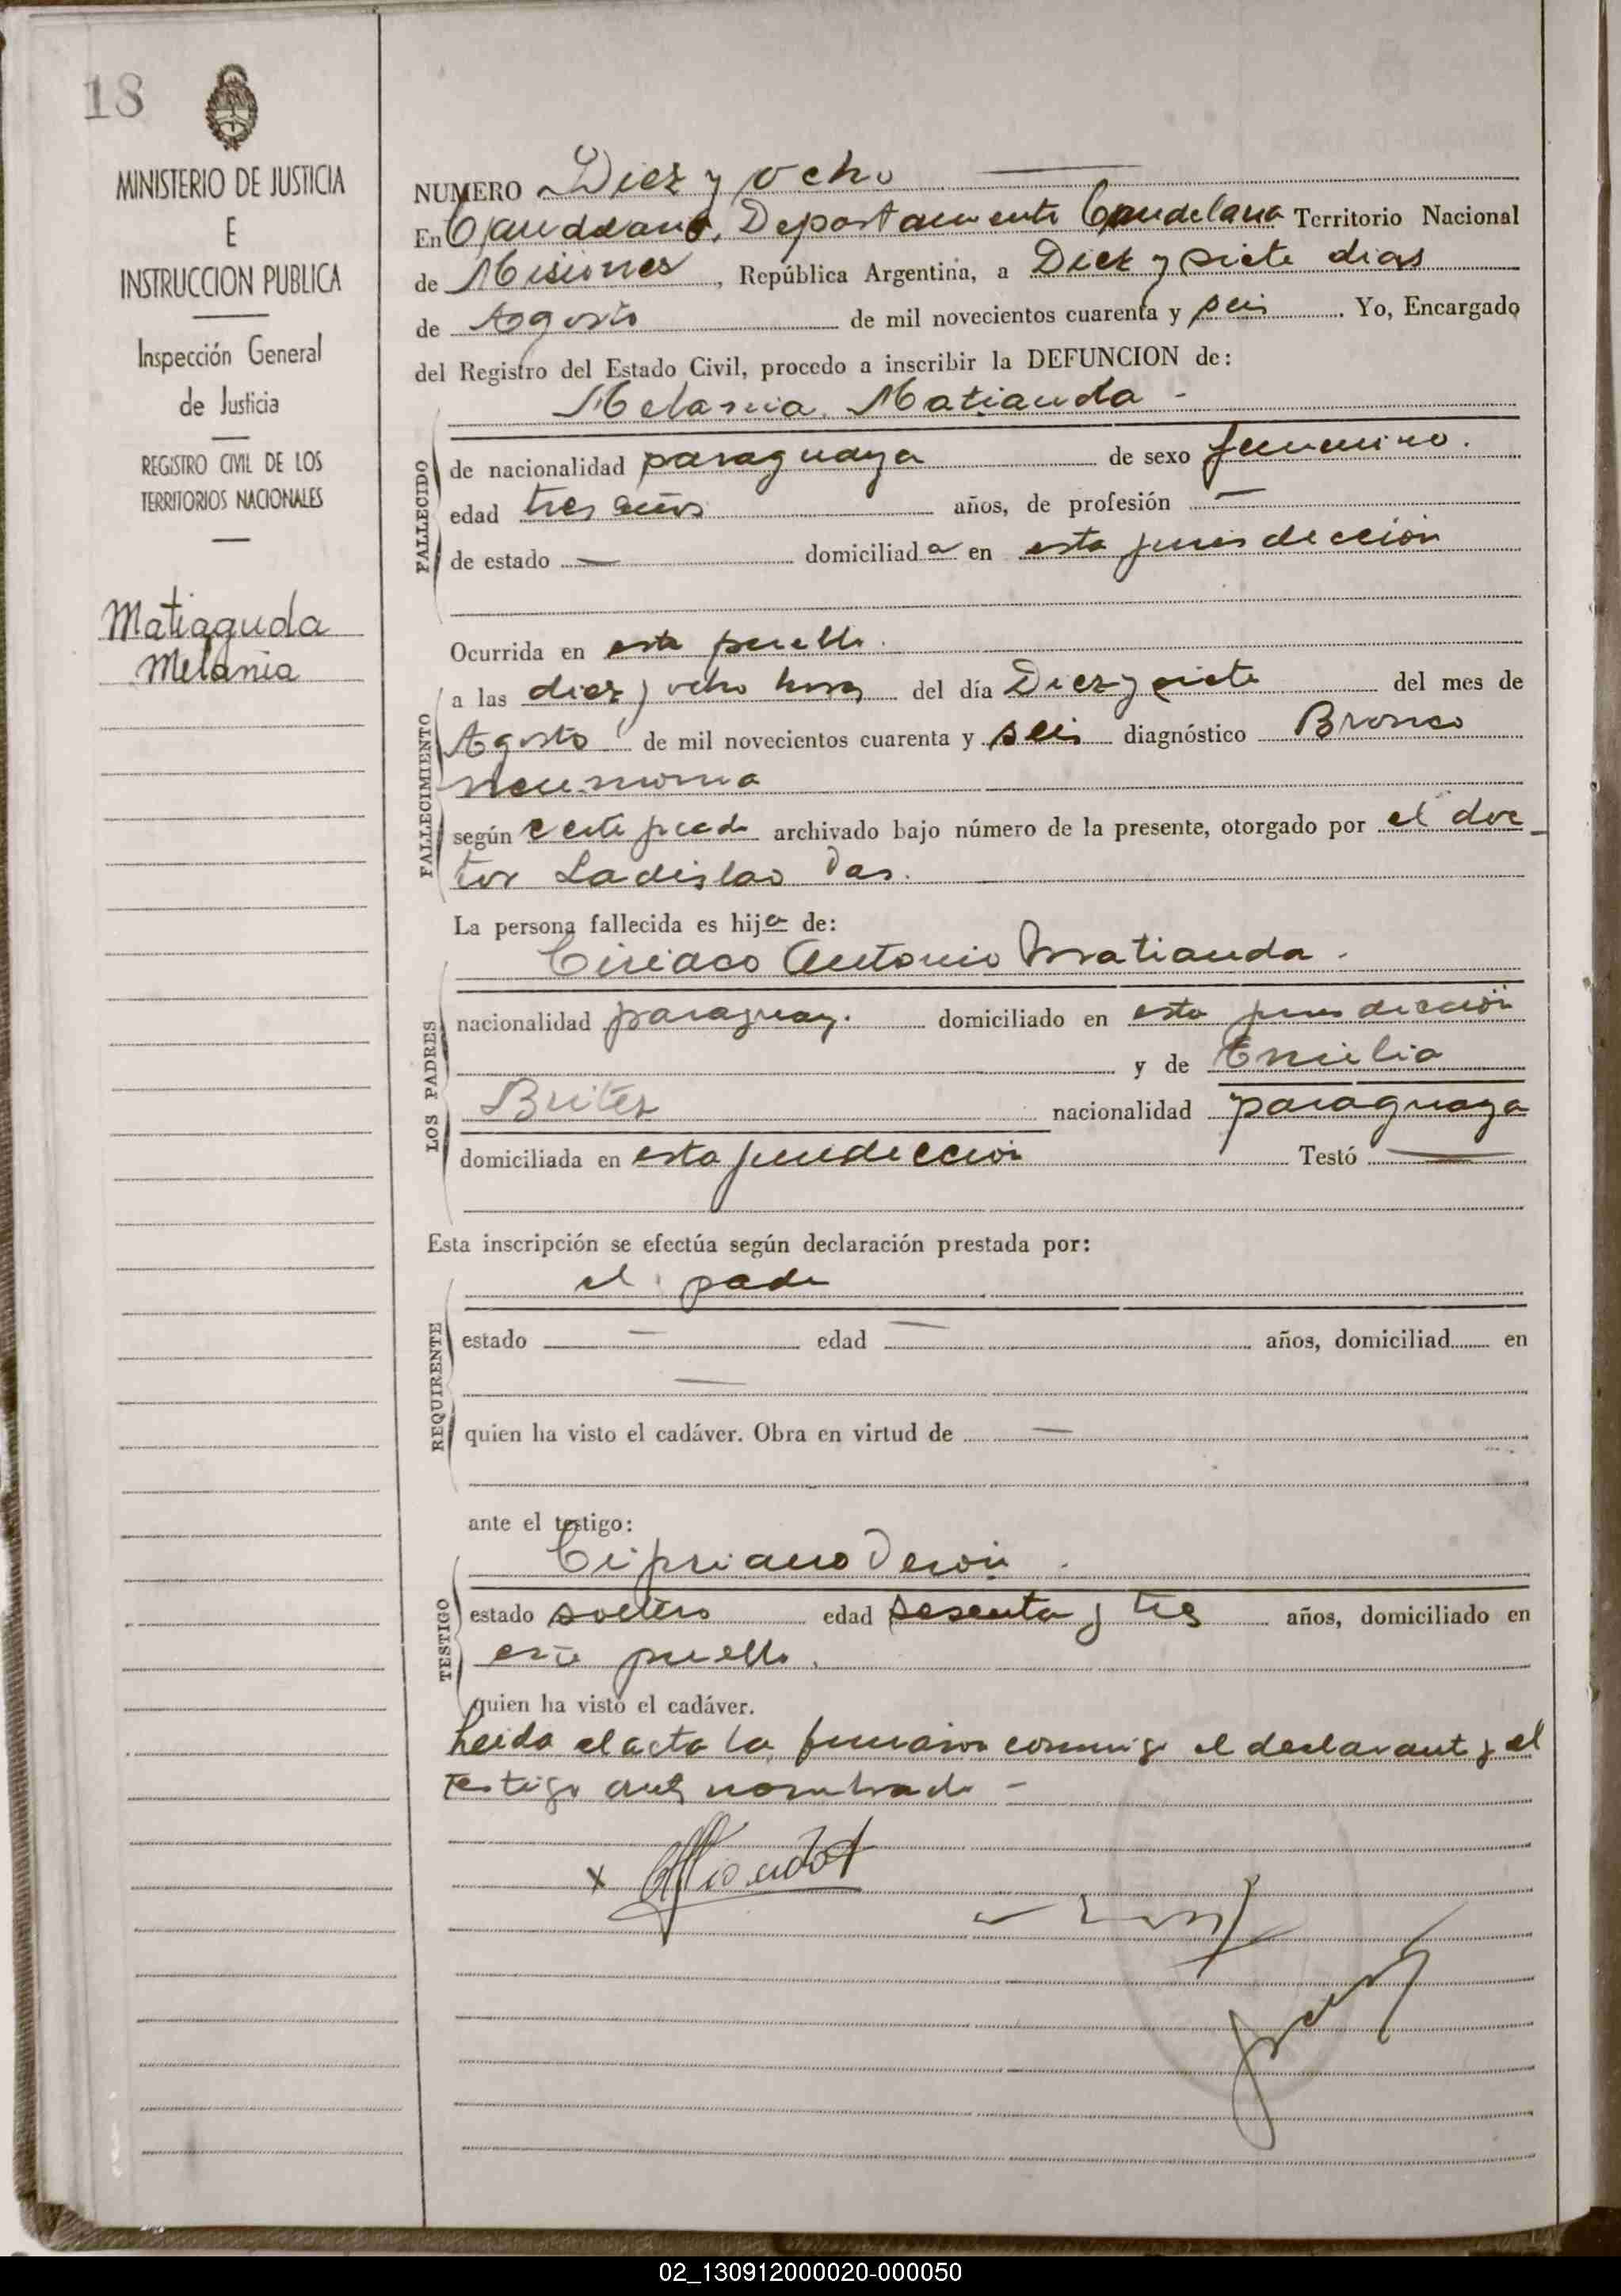 18
MINISTERIO DE JUSTICIA
E
INSTRUCCION PUBLICA
Inspección General
de Justicia
REGISTRO CIVIL DE LOS
TERRITORIOS NACIONALES
Matiaguda
Melania
NUMERO Diez y ocho
En Candelaria, Departamento Candelaria Territorio Nacional
de Misiones, República Argentina, a Diez y siete dias
de Agosto de mil novecientos cuarenta y seis. Yo, Encargado
del Registro del Estado Civil, procedo a inscribir la DEFUNCION de:
Melania Matiauda -
FALLECIDO
de nacionalidad paraguaya de sexo femenino.
edad tres años años, de profesión —
de estado — domiciliada en esta jurisdiccion
Ocurrida en este pueblo.
FALLECIMIENTO
a las diez y ocho horas del día Diez y siete del mes de
Agosto de mil novecientos cuarenta y seis diagnóstico Bronco
neumonia
según certificado archivado bajo número de la presente, otorgado por el doc
tor Ladislao
La persona fallecida es hija de:
LOS PADRES
Ciriaco Antonio Matiauda.
nacionalidad paraguay. domiciliado en esta jurisdiccion
y de Emilia
Britez nacionalidad paraguaya
domiciliada en esta jurisdiccion Testó —
Esta inscripción se efectúa según declaración prestada por:
REQUIRENTE
el padre
estado — edad — años, domiciliad en
—
quien ha visto el cadáver. Obra en virtud de —
ante el testigo:
TESTIGO
Cipriano
estado soltero edad sesenta y tres años, domiciliado en
este pueblo.
quien ha visto el cadáver.
Leida el acta la firmaron conmigo el declarante y el
testigo antes nombrado -
x
02_130912000020-000050